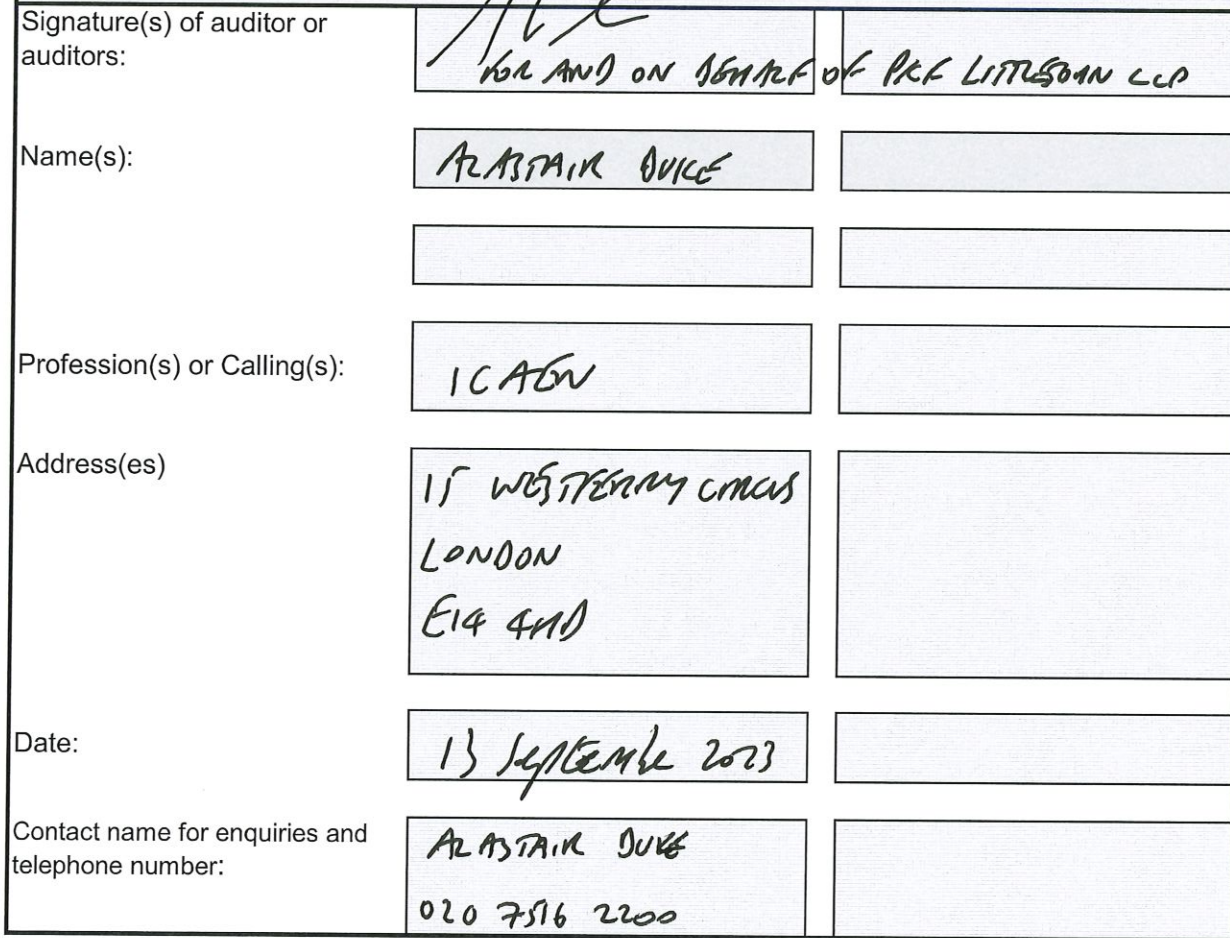 Signature(s) of auditor or
auditors:
FOR AND ON BEHALF OF PKF LITTLEJOHN LLP
Name(s):
ALASTAIR DUKE
Profession(s) or Calling(s):
ICAEW
Address(es)
15 WESTFERRY CIRCUS
LONDON
E14 4HD
Date:
13 September 2023
Contact name for enquiries and
telephone number:
ALASTAIR DUKE
020 7516 2200